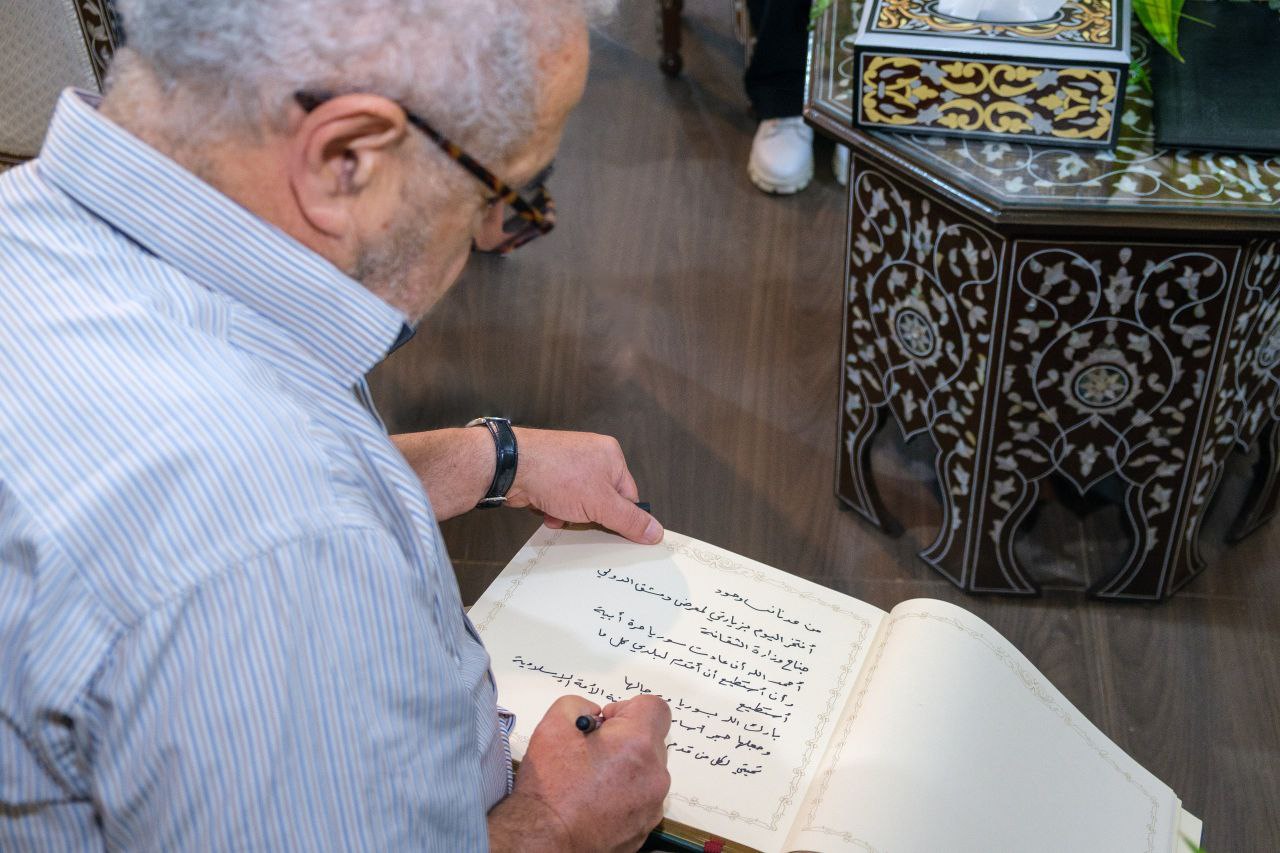 من عدنان
أفتخر اليوم بزيارتي لمعرض دمشق الدولي
جناح وزارة الثقافة
أحمد الله أن عادت سوريا حرة أبية
وأن أستطيع أن أقدم لبلدي كل ما
أستطيع
بارك الله بسوريا
وجعلها خير الأمة الإسلامية
تحيتي لكل من قدم